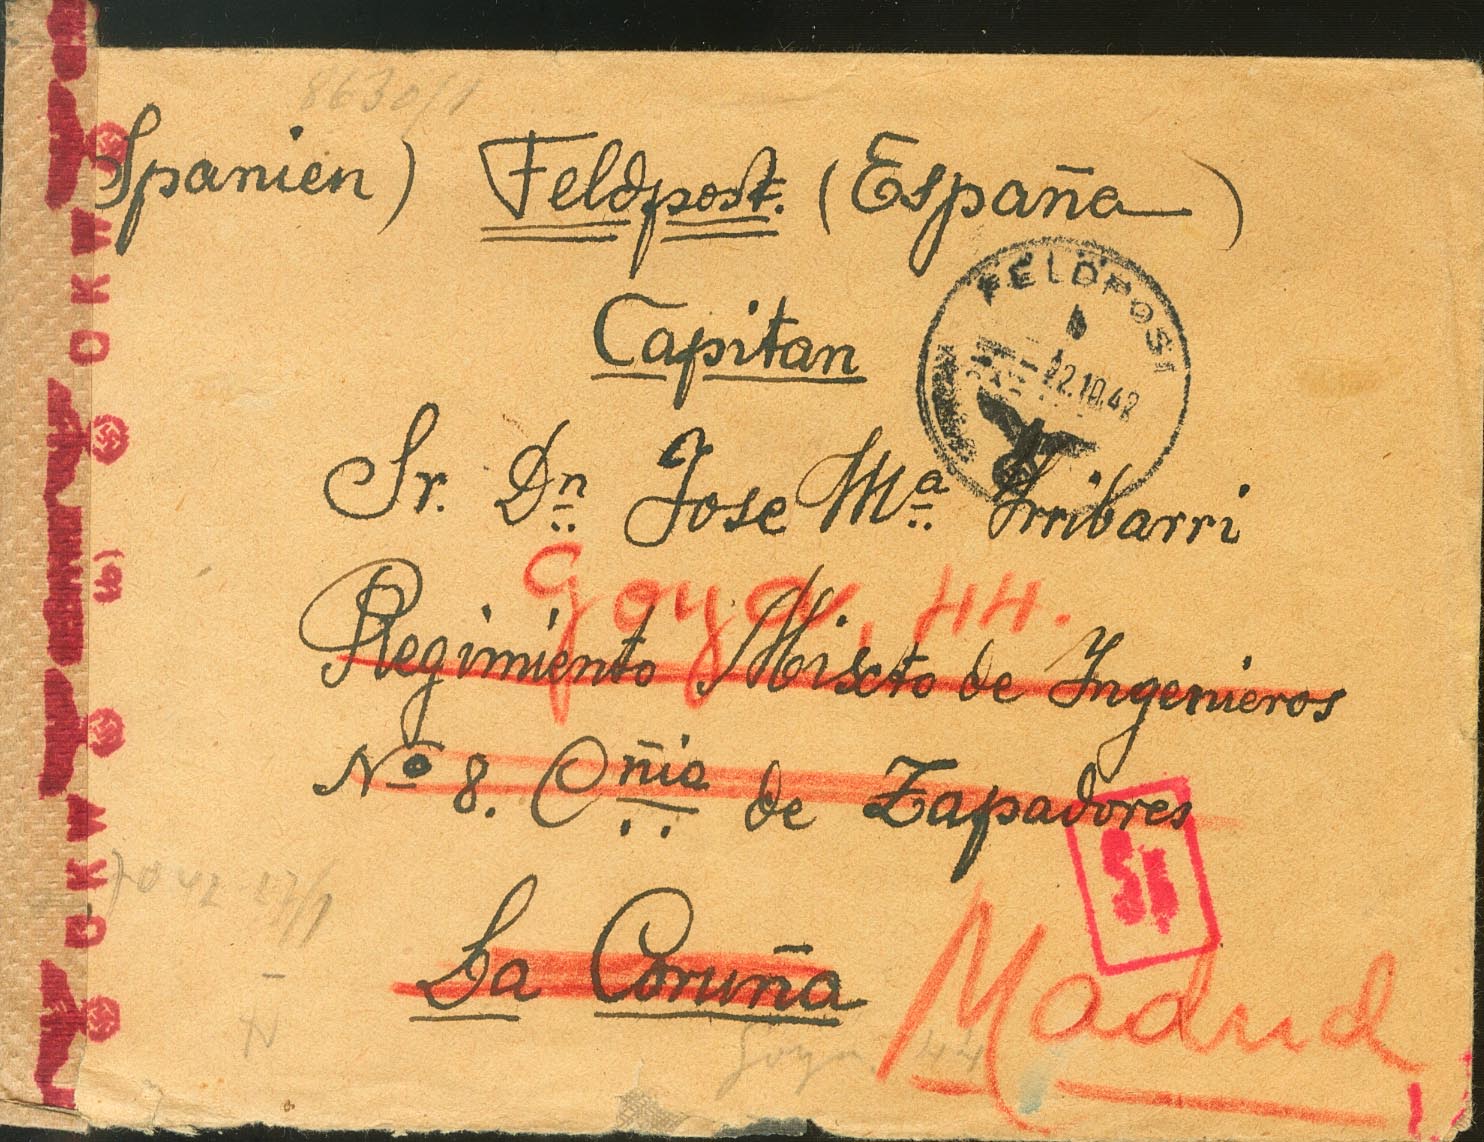 8630/1
Spanien) Feldpost. (España)
FELDPOST
22.10.42
Capitan
Sr. Dn Jose Mª Irribarri
Goya, 44.
Regimiento Mixto de Ingenieros
Nº 8. Cñia de Zapadores
La Coruña
Madrid
Goya 44
OKW
b)
OKW